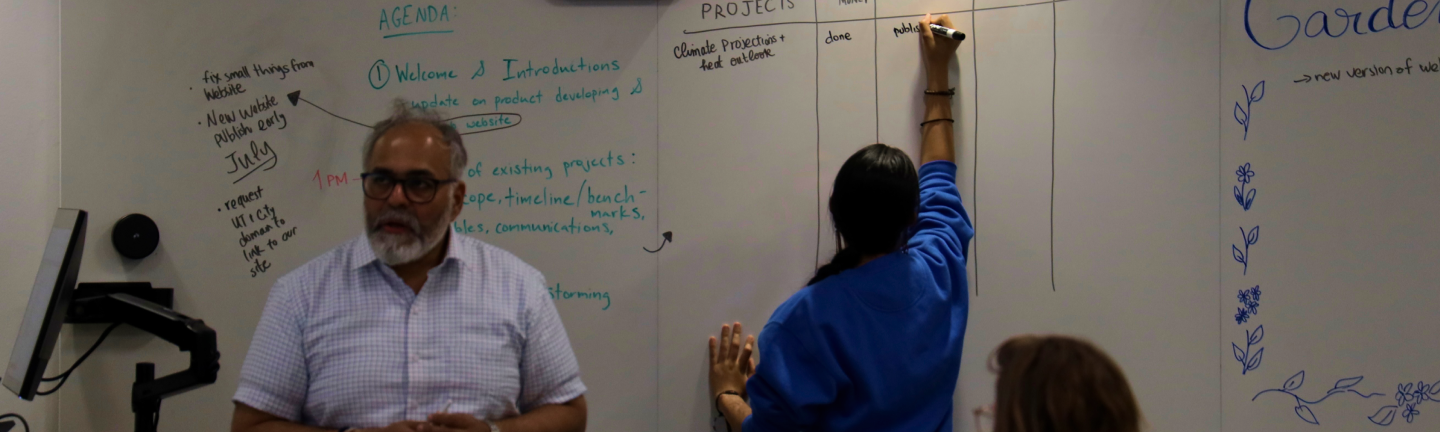 fix small things from
website
New website
publish early
July
request
UT & City
domain to
link to our
site
AGENDA:
① Welcome & Introductions
update on product developing &
website
1 PM
of existing projects:
scope, timeline/bench-
marks,
communications,
PROJECTS
Climate Projections +
heat outlook
done
publis
Garde
→ new version of we